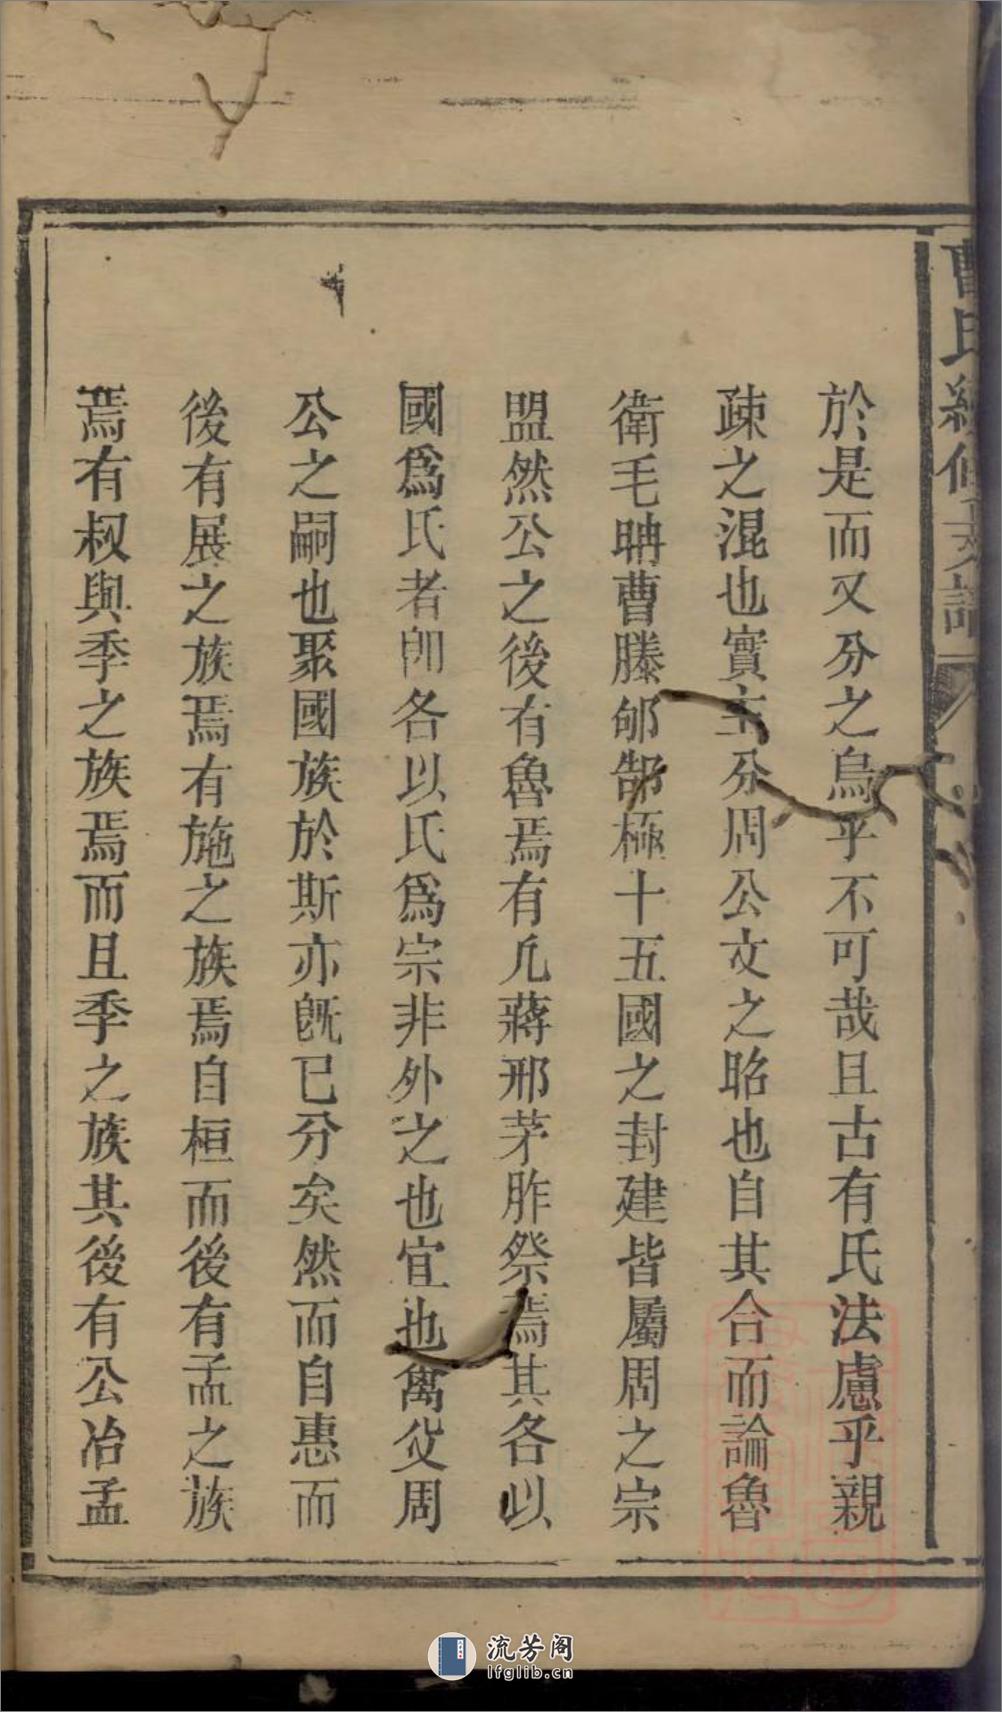 曹氏續修支譜
於是而又分之烏乎不可哉且古有氏法慮乎親
疎之混也實主分周公文之昭也自其合而論魯
衛毛聃曹滕郇郜極十五國之封建皆屬周之宗
盟然公之後有魯焉有凡蔣邢茅胙祭焉其各以
國爲氏者卽各以氏爲宗非外之也宜也禽父周
公之嗣也聚國族於斯亦旣已分矣然而自惠而
後有展之族焉有施之族焉自桓而後有孟之族
焉有叔與季之族焉而且季之族其後有公冶孟
流芳阁
lfglib.cn